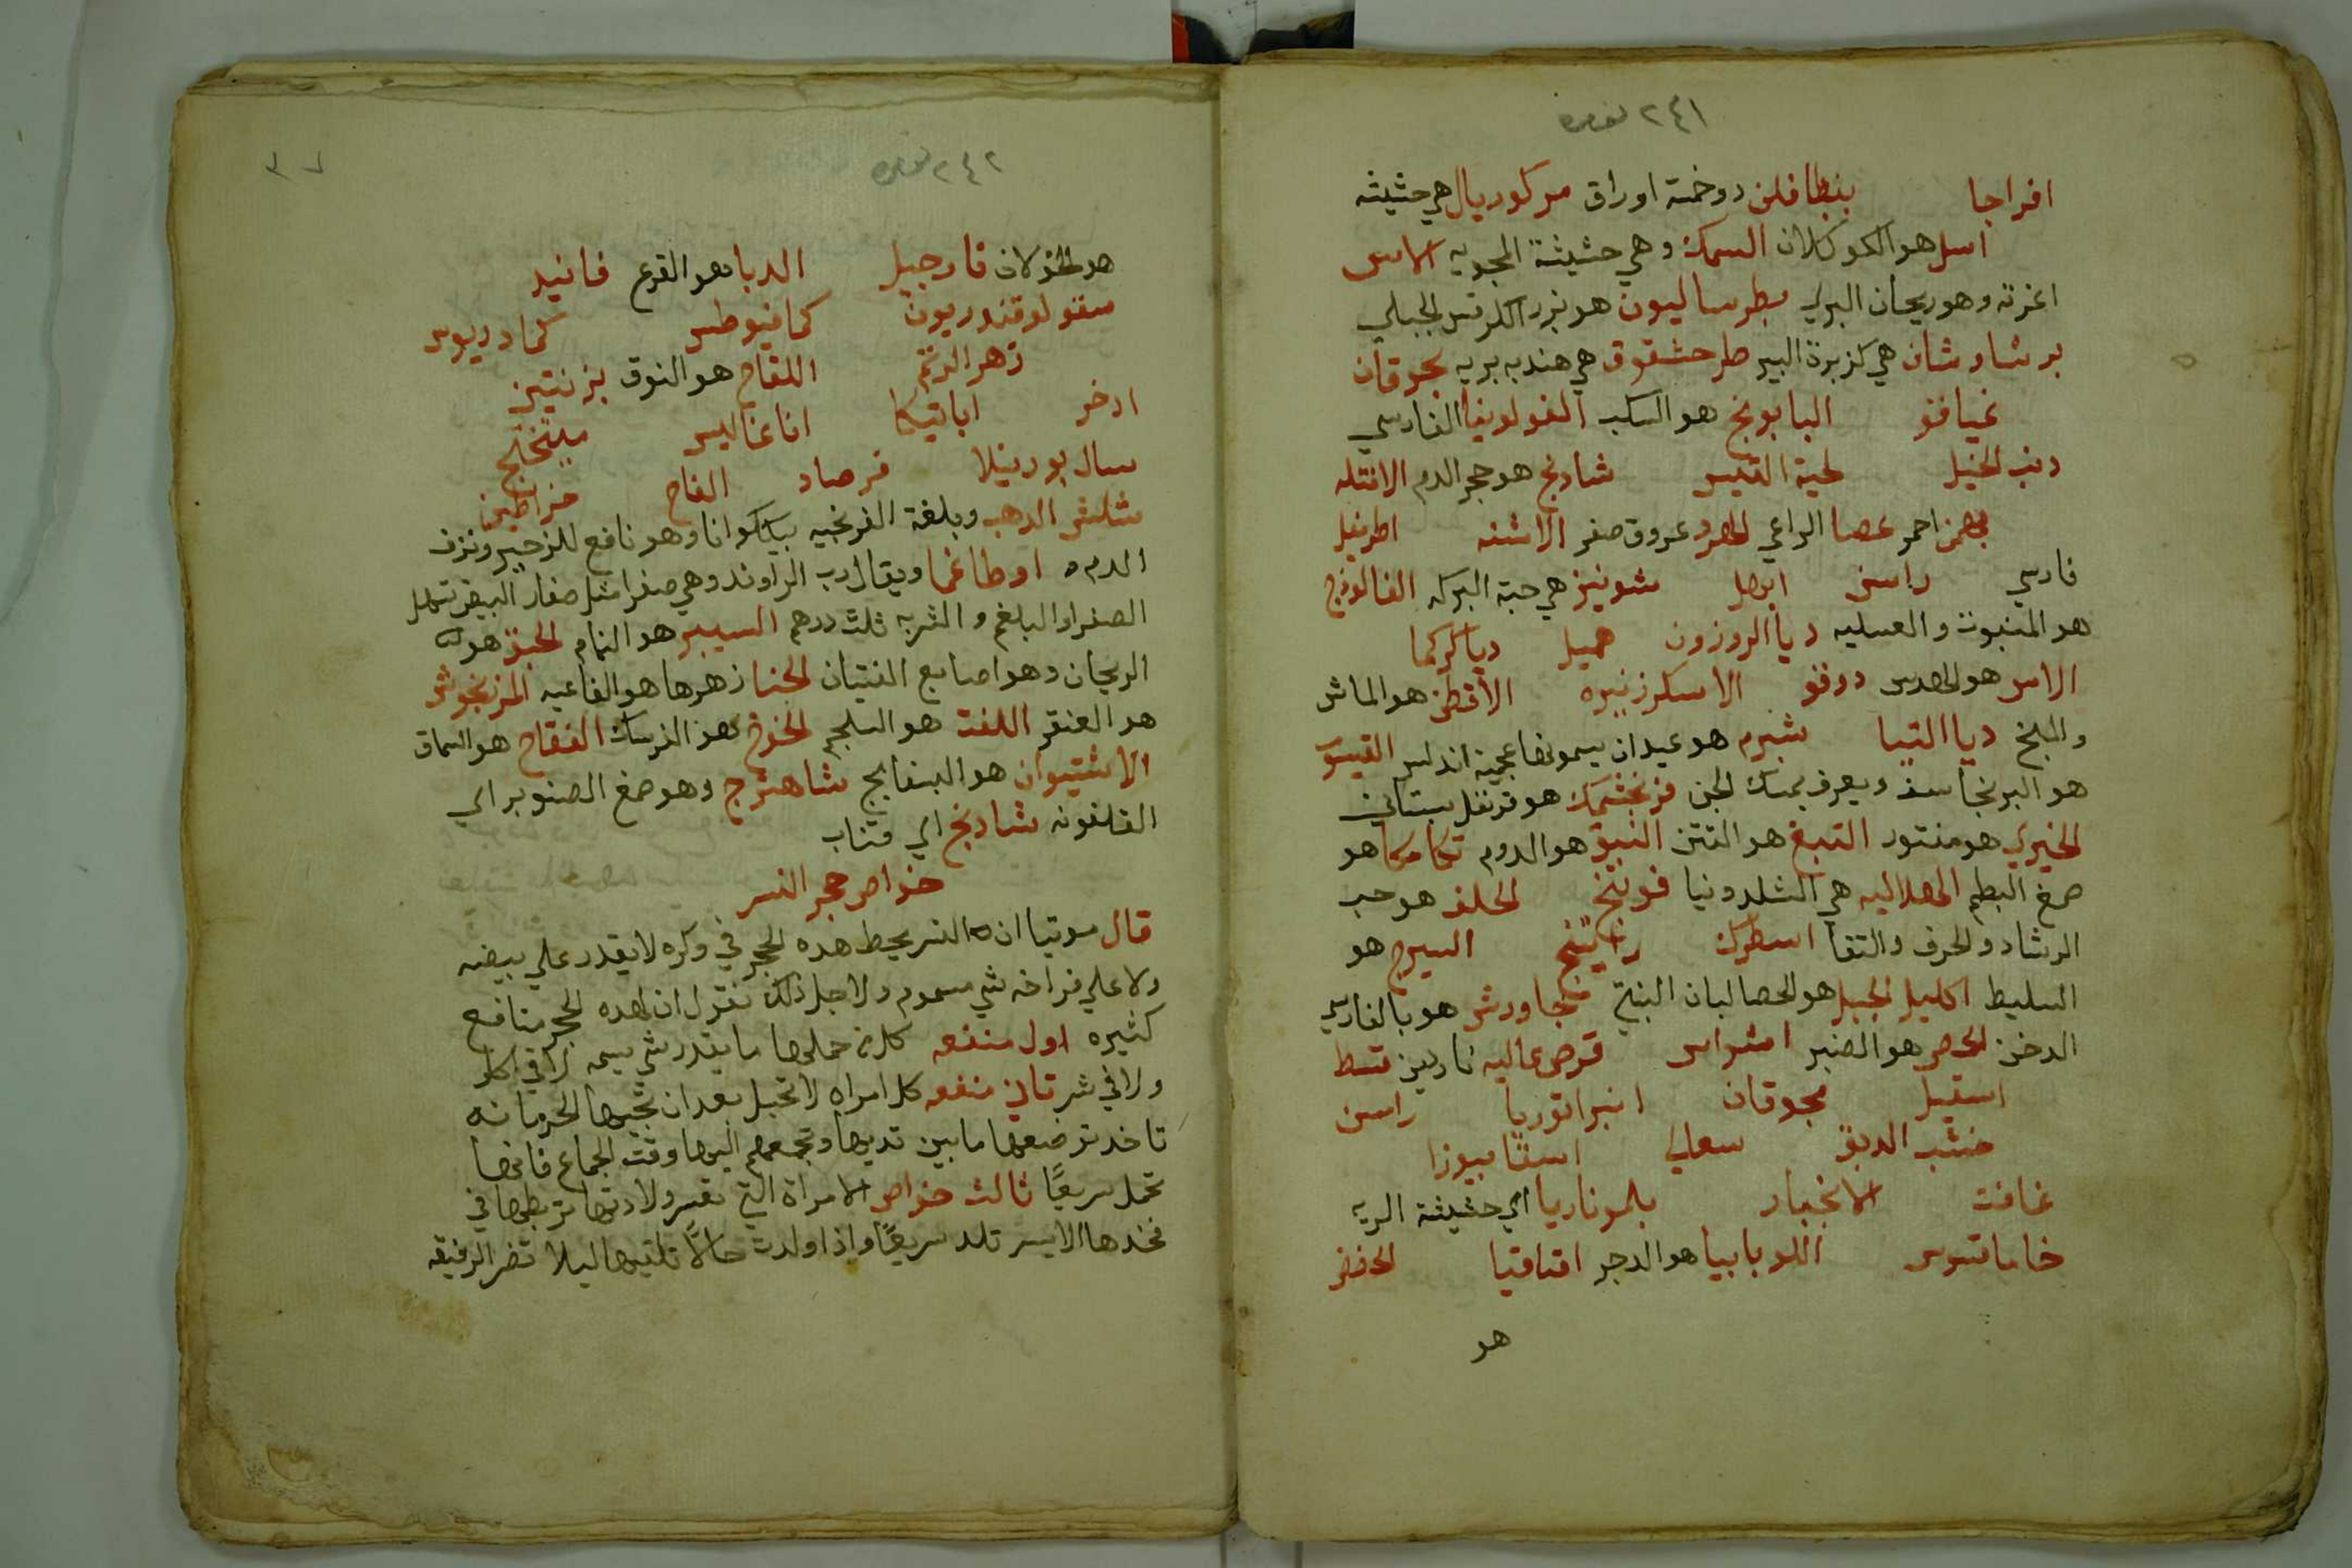 ٢٤١ نمره
افراجا بنطافلن دوخمة اوراق مركوريال هي حشيشة
اسل هو الكوكلان السمك وهي حشيشة المجويه الاس
اغزته وهو ريحان البري بطرساليون هو بزر الكرفس الجبلي
برشاوشان هي كزبرة البير طرحشقوق هي هندبه بريه بجوقان
غيافو البابونج هو السكب الفولوينا الفارسي
دنب الخيل لحية التيس شادنج هو حجر الدم الانتله
بهمن احمر عصا الراعي عروق صفر الاشنه اطريفل
فارسي راسن ابهل شونيز هي حبة البركه الفالوذج
هو المنبوت والعسليه ديا الروزون هميل دياكركما
الاس هو الهدس دوقو الاسكرزنيره الأقطن هو الماش
والملخ ديا التيبا شبرم هو عيدان يسمونها عجمية اندلس القيسوم
هو البرنجاسف ويعرف بمسك الجن فرنجشمك هو قرنفل بستاني
الخيري هو منتور التبغ هو التتن النبق هو الدوم تكامكا هو
صمغ البطم الهلاليه هي الشلدونيا فوتنج الحلف هو حب
الرشاد والحرف والتفا اسطرك راتينج السيرج هو
السليط اكليل الجبل هو الحصالبان البنج جاورش هو بالفارسي
الدخن الحمر هو الصنبر اشراس قرص عاليه ناردين قسط
اسقيل بجوقان انبراتوريا راسن
خشب الدبق سعالي اسقابيوزا
غافت الانجبار بلموناريا اي حشيشة الريه
خامانتوس اللوبابيا هو الدجر اقاقيا الحضض
هو
٢٤٢ نمره
٣٧
هو الخولان نارجيل الدبا هو القرع فانيد
سقولوقندريون كمافيوطس كمادريوس
زهر الرتم اللقاح هو النوق بزنتين
ادخر اباتيكا اناغاليس ميبختج
سال بورنيلا فرصاد الفاح خراطين
شلش الدهب وبلغة الفرنجيه بيبكوانا وهو نافع للزحير ونزف
الدم اوطاغما ويقال رب الراوند وهي صفرا مثل صفار البيض تسهل
الصفرا والبلغم والشربه ثلث درهم السيبر هو النمام الحبق هو
الريحان وهو اصابع الفتيان الحنا زهرها هو الفاغيه المرزنجوش
هو العنقر اللفت هو السلجم الخوخ هو الفرسك الفقاح هو السماق
الاشتيوان هو البسفايج شاهترج وهو صمغ الصنوبر اي
القلفونه شادنج اي قتاب
خواص حجر النسر
قال موتيا ان النسر يحط هده الحجر في وكره لا يقدر علي بيضه
ولا علي فراخه شي مسموم ولاجل ذلك نقول ان لهده الحجر منافع
كثيره اول منفعه كلمن حملها ما يقدر شي يسمه لا في اكل
ولا في شر تاني منفعه كل امراه لا تحبل بعد ان تجيها الحرمانه
تاخد ترضعها ما بين تديها وتجمعهم اليها وقت الجماع فانها
تحمل سريعًا ثالث خواص الامراة التي تعسر ولادتها تربطها في
فخدها الايسر تلد سريعًا واذا ولدت حالًا تلقيها ليلا تضر الرفيقه